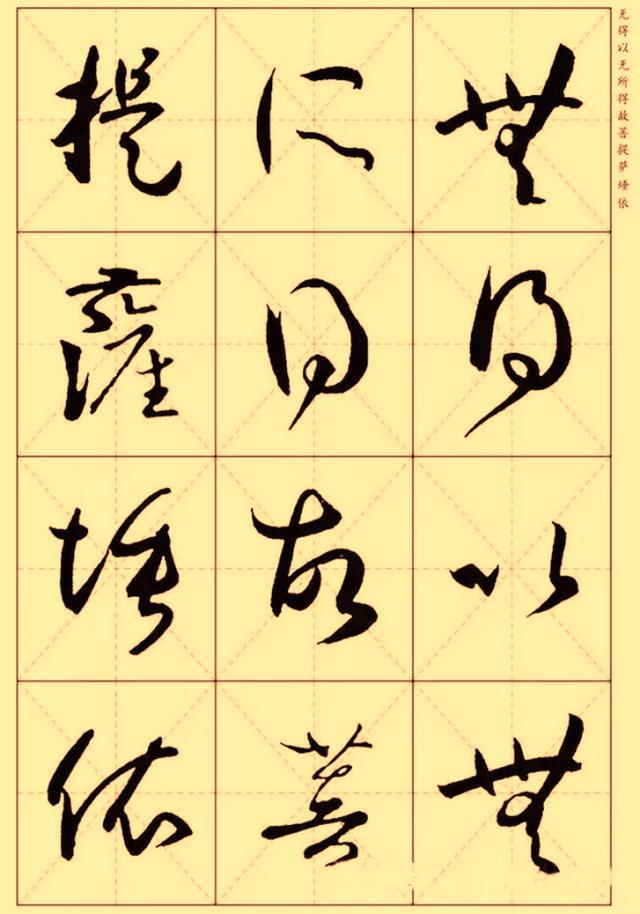 无得以无所得故菩提萨埵依
無得以無
所得故菩
提薩埵依